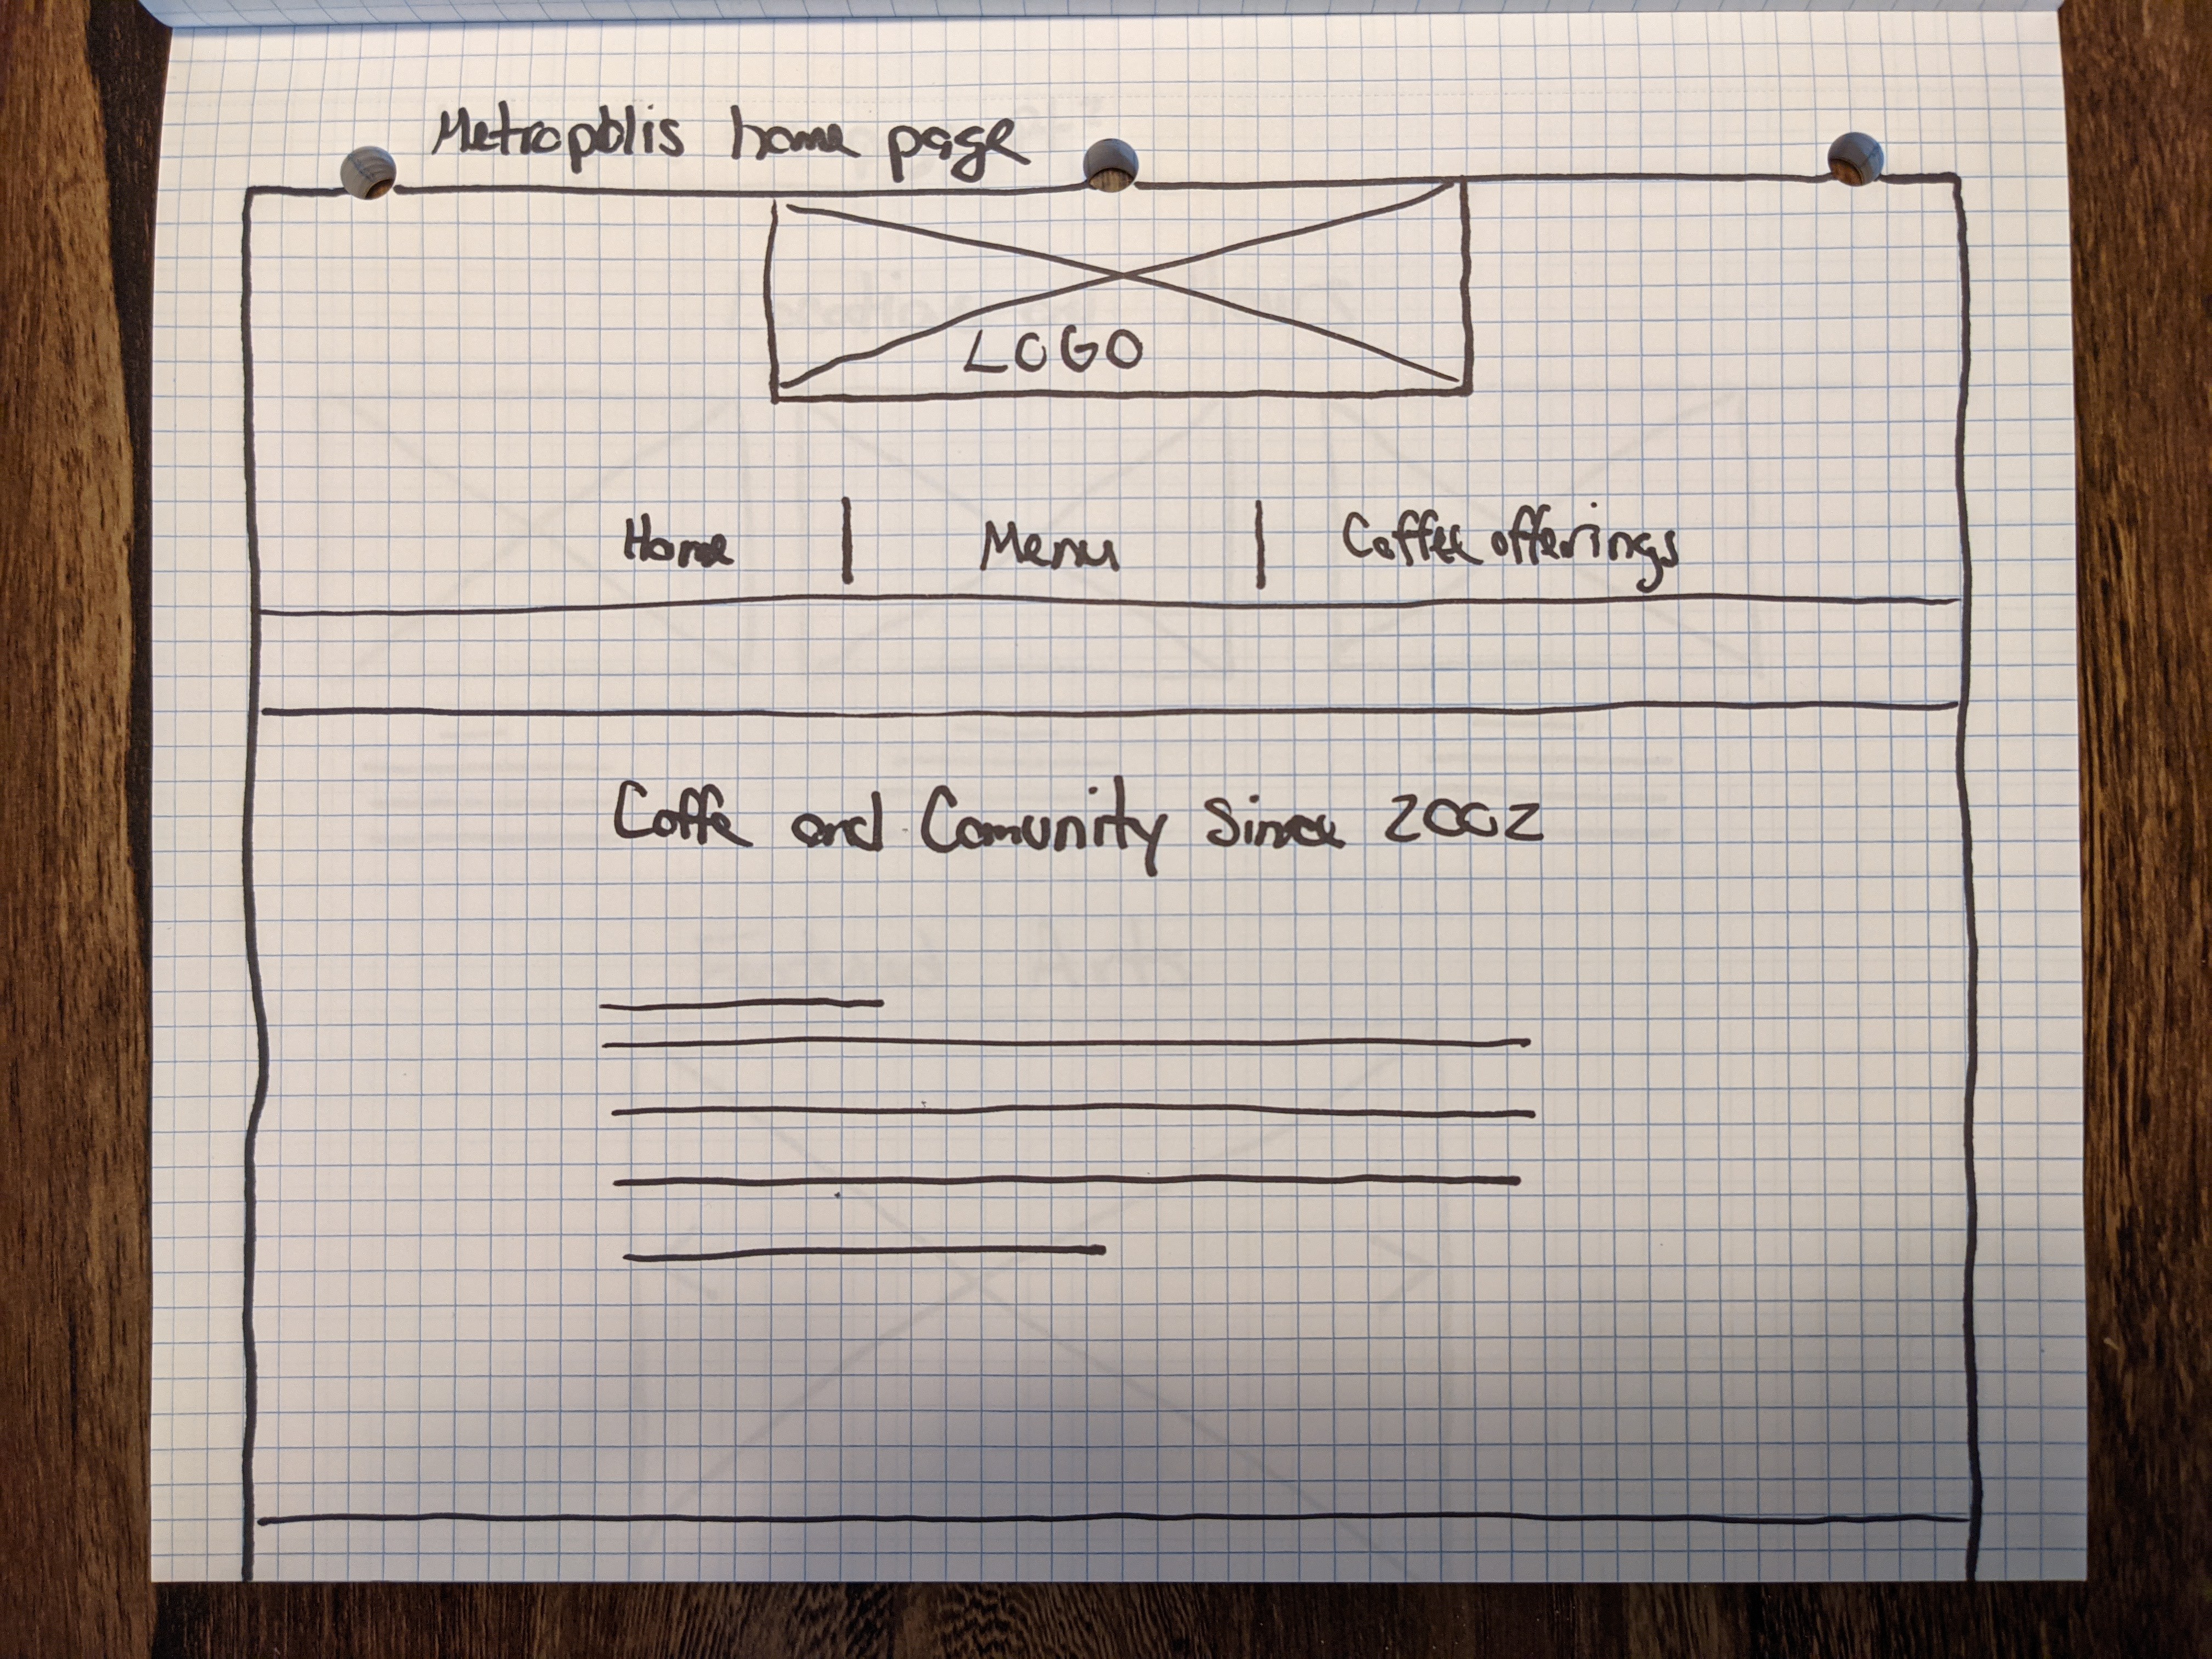 Metropolis home page
LOGO
Home | Menu | Coffee offerings
Coffe and Comunity Since 2002